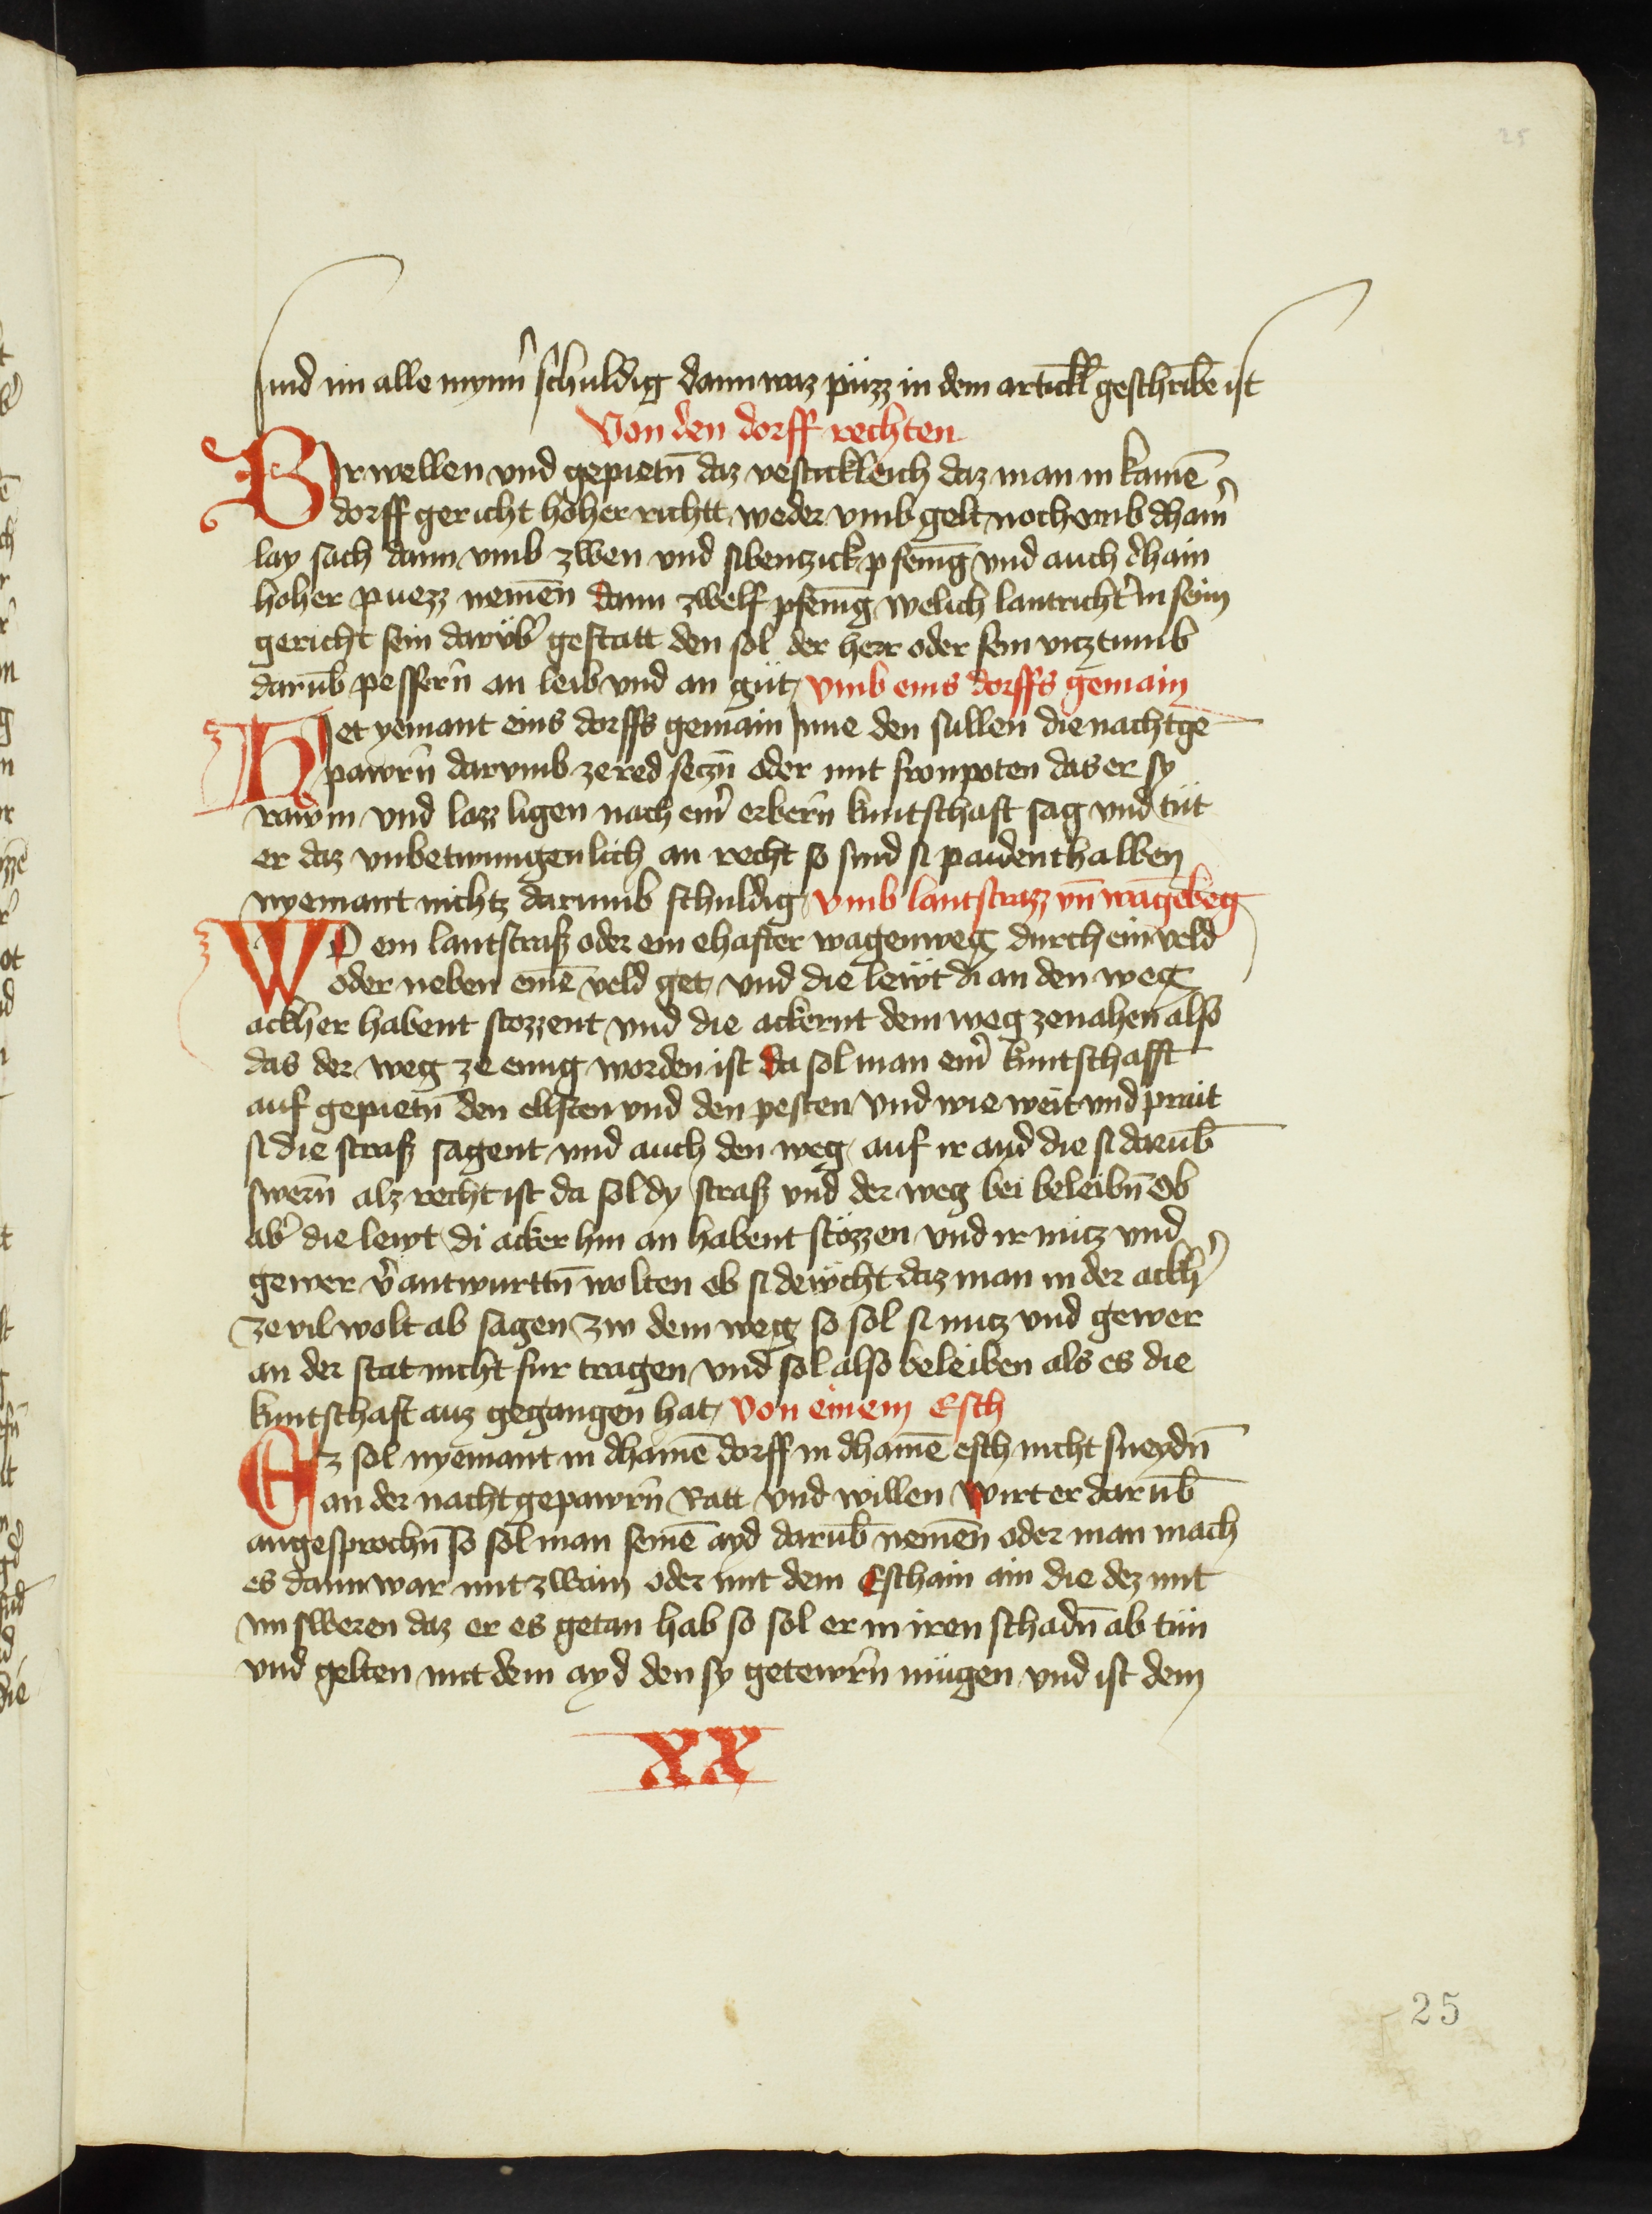 25
sind im alle mynn̄ schuldig dann waz püzz in dem artickl̄ geschribē ist
Von den dorff rechten
Bir wellen vnd gepietn̄ daz vestickleich daz man in kainē
dorff gericht hoher richtt weder vmb gelt noch vmb dhain̄
lay sach dann vmb zwen vnd sibentzick pfenīg vnd auch dhain
hoher puezz nemēn dann zwelf pfenīg welich lantricht̄ in seim
gericht sein darüb̄ gestatt den sol der herr oder sein vicztumb
darūb pessern̄ an leib vnd an güt vmb eins dorffs gemain
Het yemant eins dorffs gemain Inne den sullen die nachtge
pawrn̄ darvmb ze red seczn̄ oder mit fronpoten das er sy
rawm vnd lazz ligen nach ein̄ erbern̄ kuntschaft sag vnd tüt
er daz vnbetwungenlich an recht so sind si paidenthalben
nyemant nichtz darumb schuldig vmb lantstrazz vn̄ wagēbeg
WO ein lantstraß oder ein ehafter wagenweg durch ein veld
oder neben einē veld get vnd die lewt di an den weg
ackher habent stozzent vnd die ackernt dem weg ze nahen also
das der weg ze enng worden ist da sol man ein̄ kuntschafft
auf gepietn̄ den eltsten vnd den pesten vnd wie weit vnd prait
si die straß sagent vnd auch den weg auf ir ayd die si darūb
swern̄ alz recht ist da sol dy straß vnd der weg bei beleibn̄ Ob
ab̄ die lewt di acker hin an habent stözzen vnd ir nücz vnd
gewer v̄antwurttn̄ wolten ob si dewcht daz man in der ackh̄
ze vil wolt ab sagen zw dem weg so sol si nucz vnd gewer
an der stat nicht fur tragen vnd sol also beleiben als es die
kuntschaft auz gegangen hat von einem Esch
Ez sol nyemant in dhainē dorff in dhainē esch nicht sneydn̄
an der nachtgepawrn̄ Ratt vnd willen wirt er darūb
angesprochn̄ so sol man seinē ayd darūb nemēn oder man mach
es dann war mit zwain oder mit dem Eschain ain die dez mit
im sweren daz er es getan hab so sol er in iren schadn̄ ab tün
vnd gelten mit dem ayd den sy getewrn̄ mügen vnd ist dem
XX
25